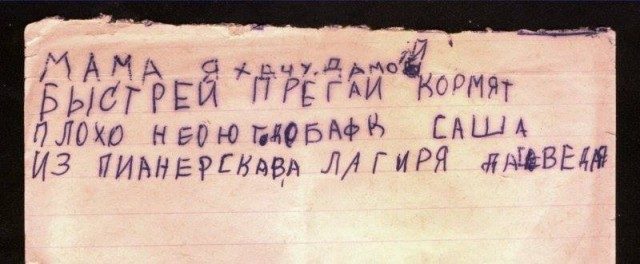 МАМА Я ХЕЧУ. ДАМОЙ
БЫСТРЕЙ ПРЕГАЙ КОРМЯТ
ПЛОХО САША
ИЗ ПИАНЕРСКАВА ЛАГИРЯ